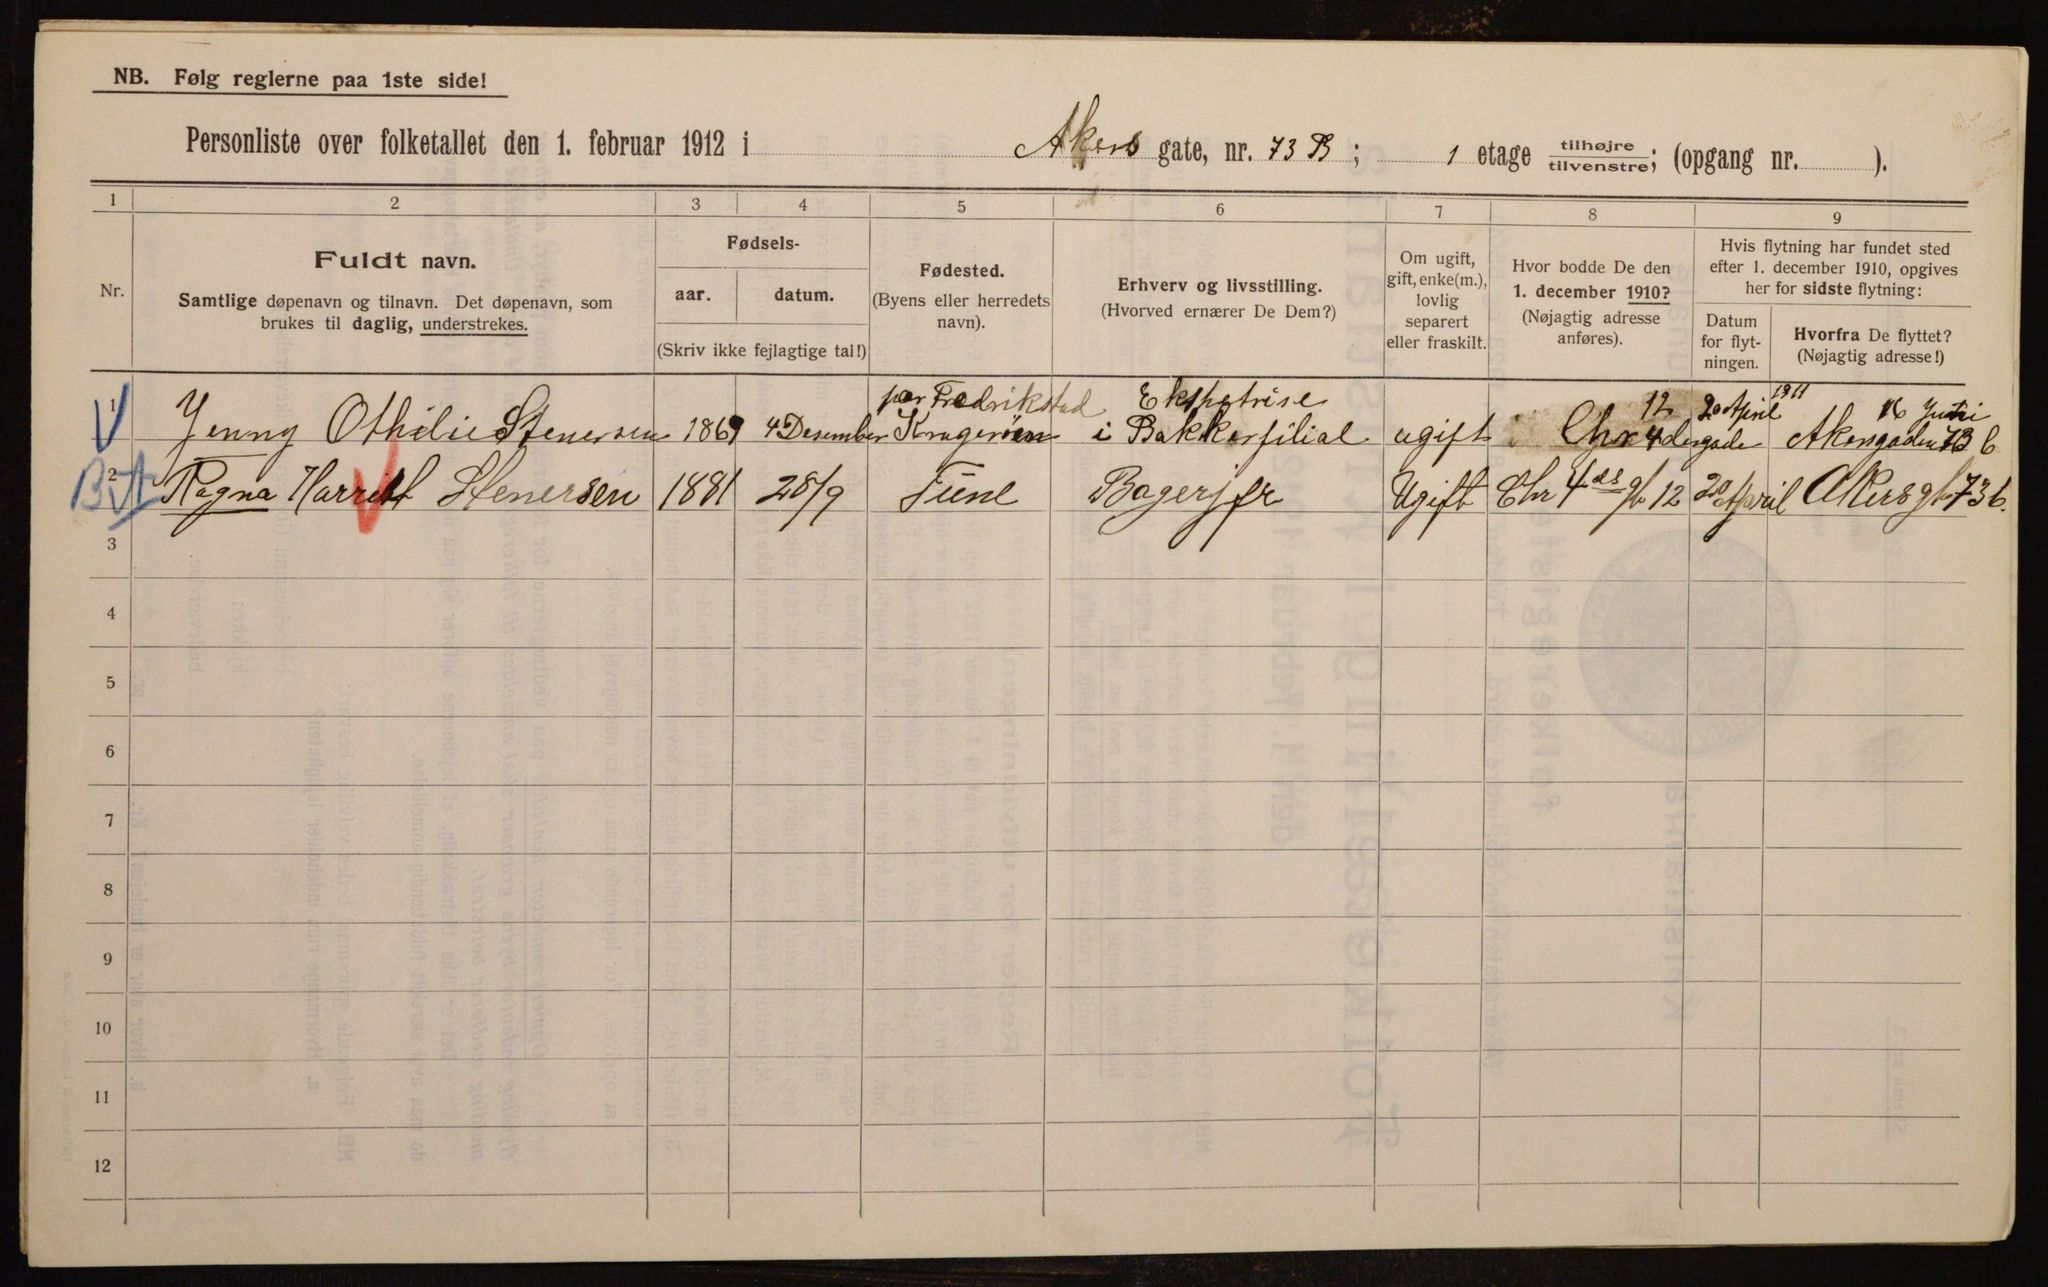 NB. Følg reglerne paa 1ste side!
Personliste over folketallet den 1. februar 1912 i Akers gate, nr. 73 B; 1 etage tilhøjre tilvenstre; (opgang nr. ).
1 2 3 4 5 6 7 8 9
Nr.
Fuldt navn.
Samtlige døpenavn og tilnavn. Det døpenavn, som
brukes til daglig, understrekes.
Fødsels-
aar. datum.
(Skriv ikke fejlagtige tal!)
Fødested.
(Byens eller herredets
navn).
Erhverv og livsstilling.
(Hvorved ernærer De Dem?)
Om ugift,
gift, enke(m.),
lovlig
separert
eller fraskilt.
Hvor bodde De den
1. december 1910?
(Nøjagtig adresse
anføres).
Hvis flytning har fundet sted
efter 1. december 1910, opgives
her for sidste flytning:
Datum
for flyt-
ningen.
Hvorfra De flyttet?
(Nøjagtig adresse!)
per Fredrikstad Ekspetrise 12 20 April 1911 16
1 Jenny Othilie Stenersen 1869 4 Desember Kragerøen i Bakkerfilial ugift Chr 4des gade Akersgaden 73 b
2 Ragna Harriet Stenersen 1881 28/9 Tune Bagerjfr Ugift Chr 4des gt 12 20 April Akersgt 73 b.
3
4
5
6
7
8
9
10
11
12